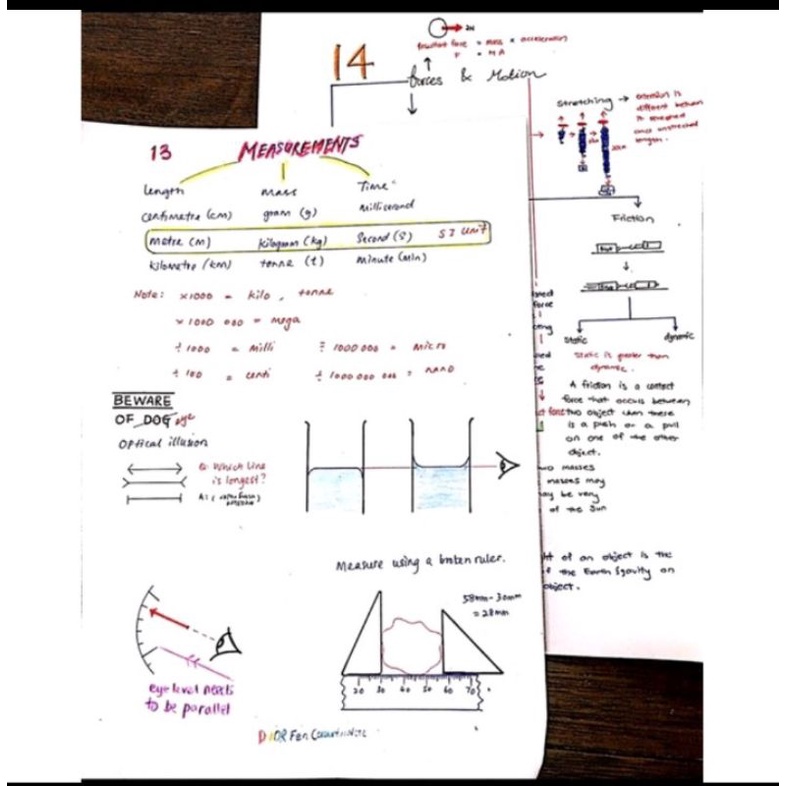 13 MEASUREMENTS
Length Mass Time
centimetre (cm) gram (g) Millisecond
metre (m) kilogram (kg) Second (s) SI Unit
kilometre (km) tonne (t) minute (min)
Note: x1000 = kilo, tonne
x 1000 000 = mega
÷ 1000 = milli ÷ 1000 000 = micro
÷ 100 = centi ÷ 1000 000 000 = nano
BEWARE
OF DOG eye
Optical illusion
Q: Which line
is longest?
A: (
Measure using a broken ruler.
58mm - 30mm
= 28mm
20 30 40 50 60 70
eye level needs
to be parallel
14
force = mass x acceleration
F = MA
forces & Motion
Stretching → extension is
different between
is stretched
and unstretched
length.
Friction
static dynamic
static is greater than
dynamic.
A friction is a contact
force that occurs between
two object when there
is a push or a pull
on one of the other
object.
masses
masses may
may be very
of the sun
of an object is the
the Earth's gravity on
object.